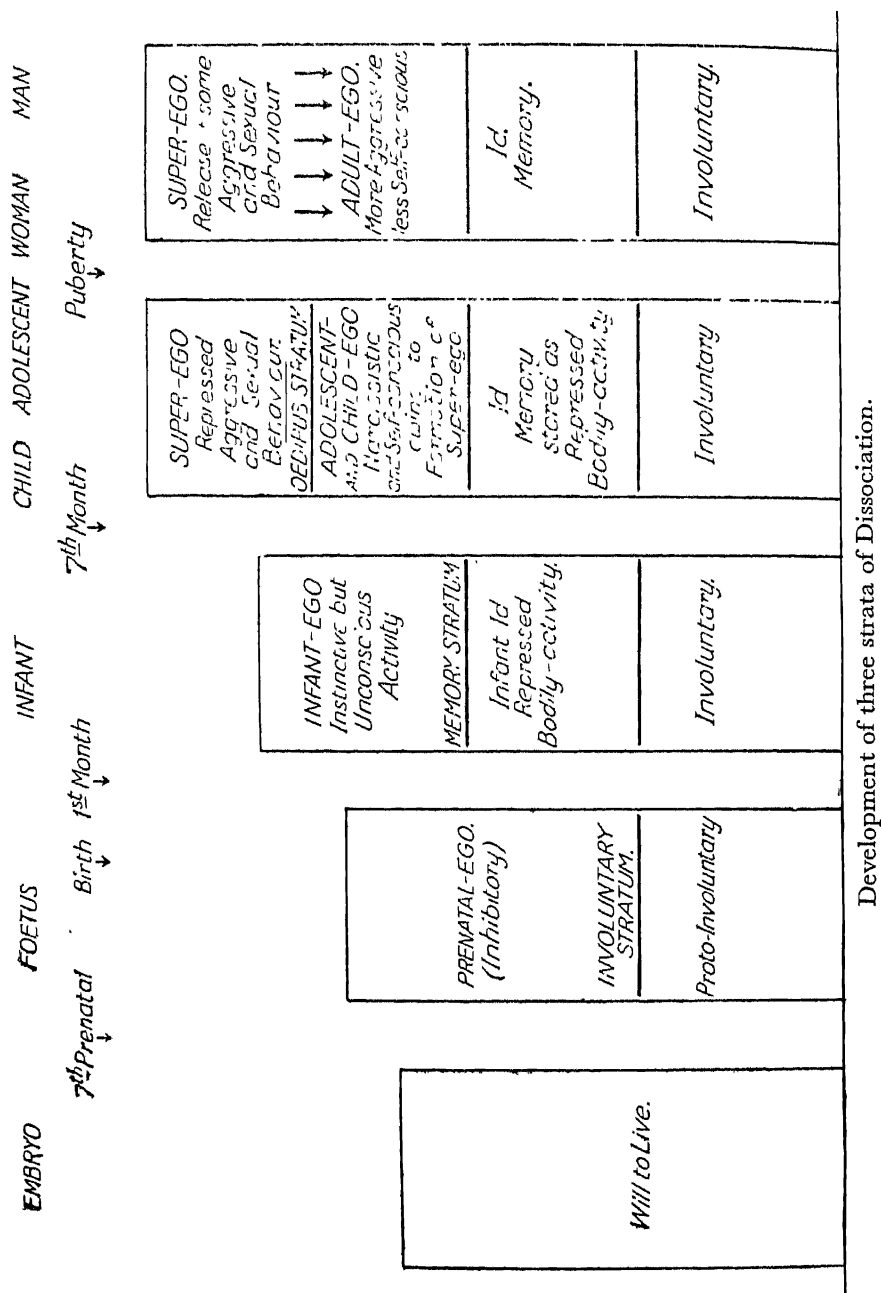 EMBRYO FOETUS INFANT CHILD ADOLESCENT WOMAN MAN
7th Prenatal Birth 1st Month 7th Month Puberty
Will to Live.
PRENATAL-EGO.
(Inhibitory)
INVOLUNTARY
STRATUM.
Proto-Involuntary
INFANT-EGO
Instinctive but
Unconscious
Activity
MEMORY STRATUM
Infant Id
Repressed
Bodily-activity.
Involuntary.
SUPER-EGO
Repressed
Aggressive
and Sexual
Behaviour.
OEDIPUS STRATUM
ADOLESCENT-
AND CHILD-EGO
Narcissistic
and Self-conscious
owing to
Formation of
Super-ego
Id
Memory
stored as
Repressed
Bodily-activity
Involuntary
SUPER-EGO.
Release some
Aggressive
and Sexual
Behaviour
ADULT-EGO.
More Aggressive
less Self-conscious
Id.
Memory.
Involuntary.
Development of three strata of Dissociation.